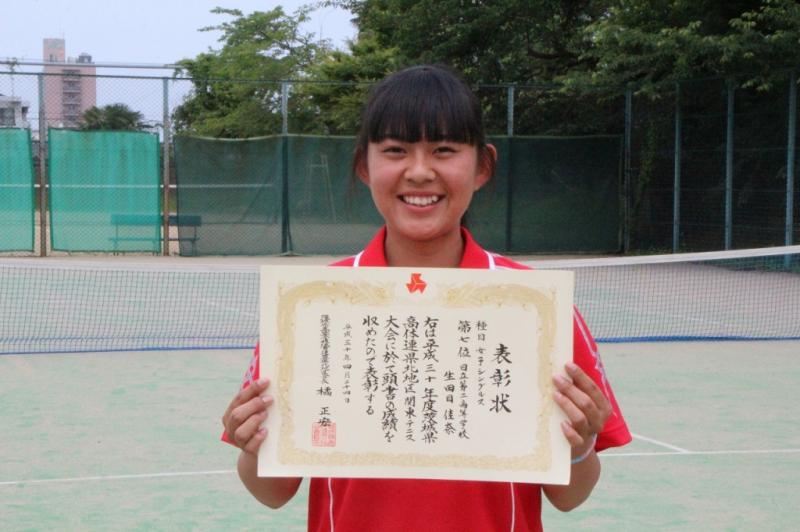 表彰状
種目 女子シングルス
第七位 日立第二高等学校
生田目 佳奈
右は平成三十年度茨城県
高体連県北地区関東テニス
大会に於て頭書の成績を
収めたので表彰する
平成三十年四月二十四日
橘 正宏